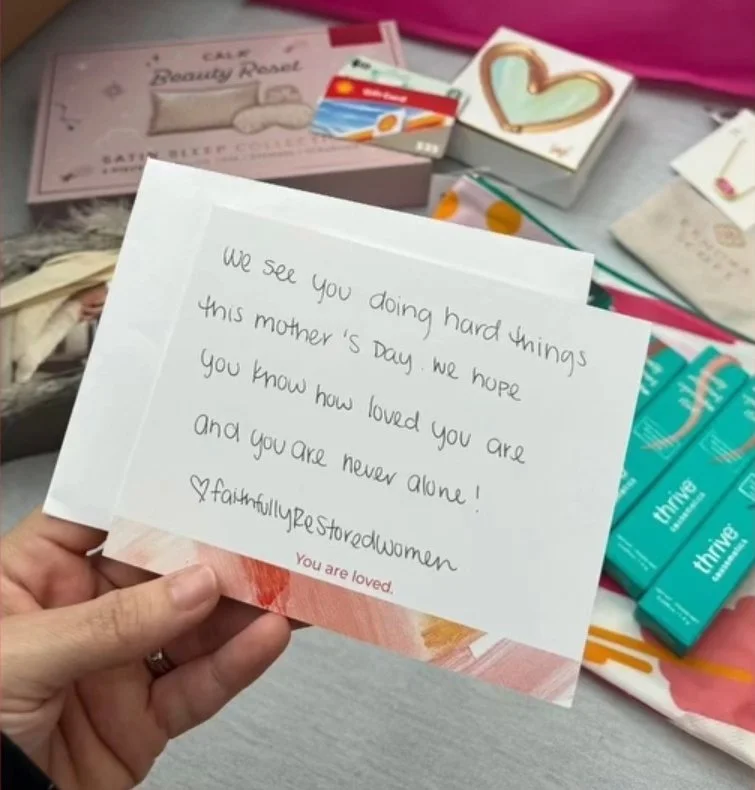 CALA
Beauty Reset
SATIN SLEEP COLLECTION
Gift Card
$25
KENDRA
SCOTT
We see you doing hard things
this mother's Day. We hope
you know how loved you are
and you are never alone!
♡faithfullyRestoredwomen
You are loved.
thrive
causemetics
thrive
causemetics